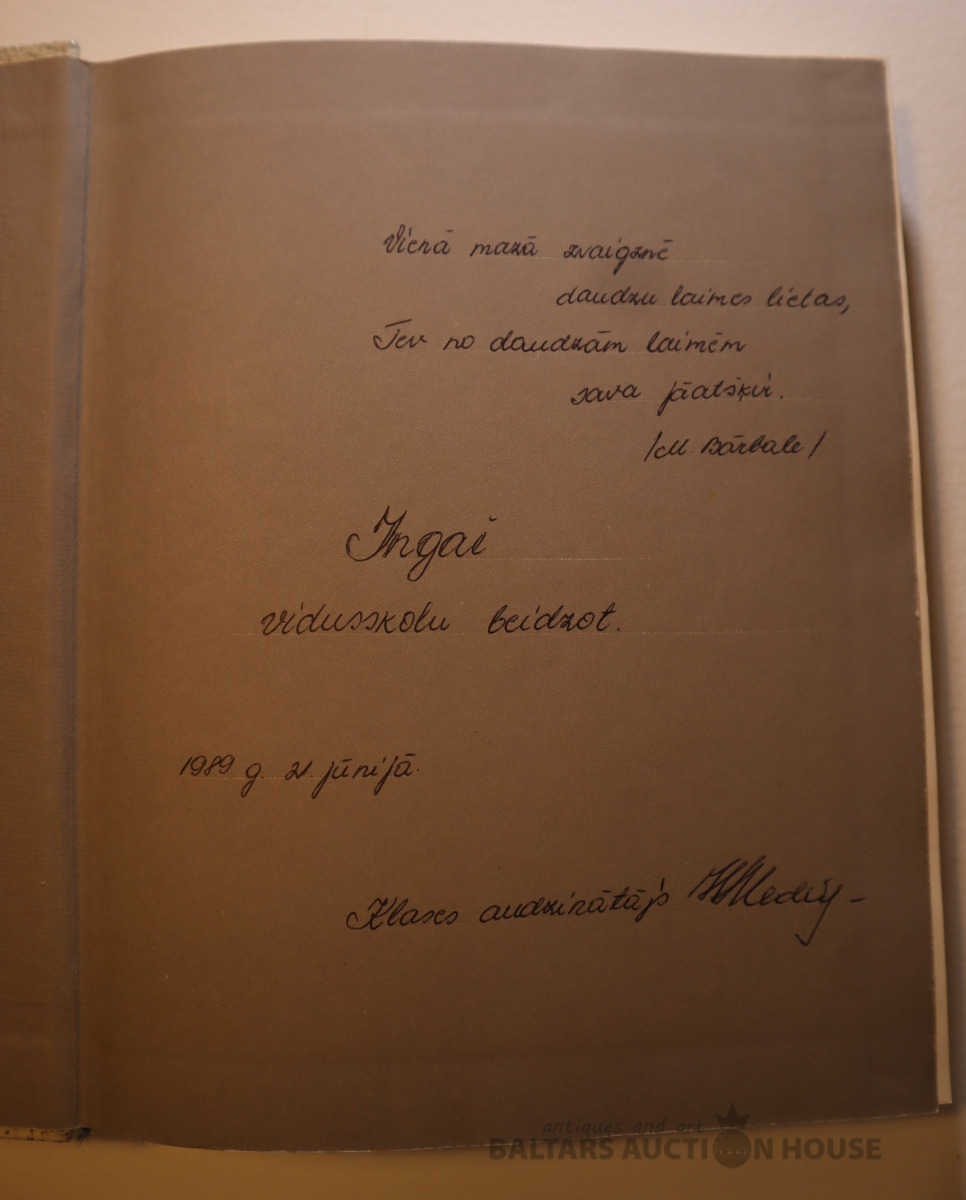 Vienā mazā zvaigznē
daudzu laimes lietas,
Tev no daudzām laimēm
sava jāatšķir.
/M. Bārbale/
Ingai
vidusskolu beidzot.
1989 g. 21. jūnijā.
Klases audzinātājs
antiques and art
BALTARS AUCTION HOUSE